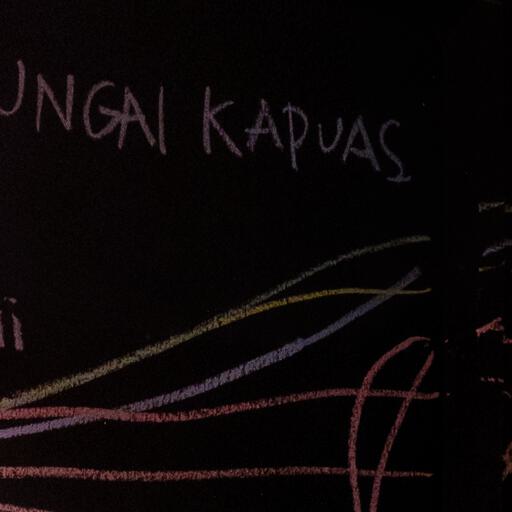 UNGAI KAPUAS
ii